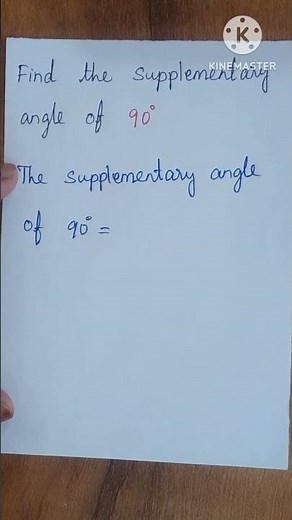 K
KINEMASTER
Find the supplementary
angle of 90°
The supplementary angle
of 90° =